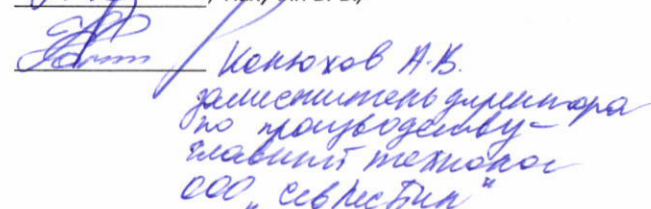 Конюхов А.В.
заместитель директора
по производству-
главный технолог
ООО „